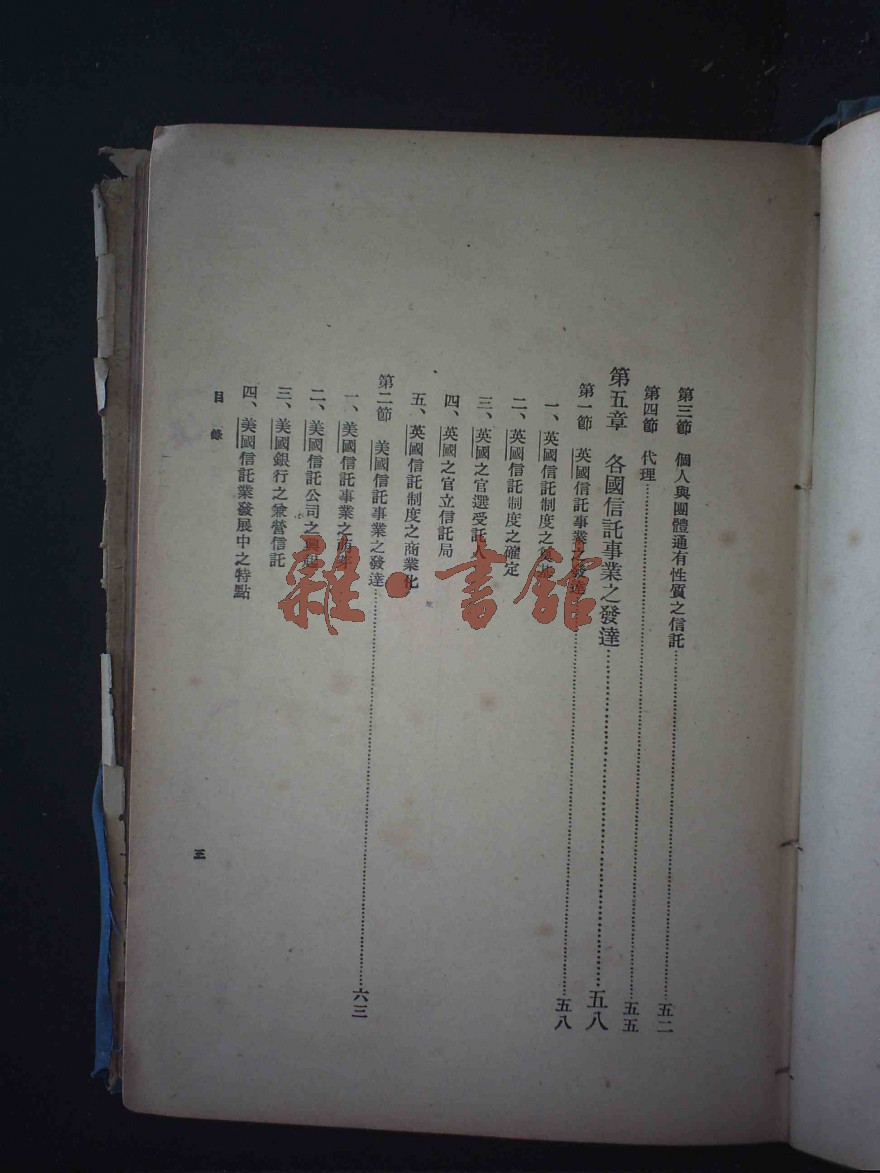 第三節　個人與團體通有性質之信託……五二
第四節　代理……五五
第五章　各國信託事業之發達……五八
第一節　英國信託事業之發達……五八
一、英國信託制度之
二、英國信託制度之確定
三、英國之官選受託人
四、英國之官立信託局
五、英國信託制度之商業化
第二節　美國信託事業之發達……六三
一、美國信託事業之萌芽
二、美國信託公司之興起
三、美國銀行之兼營信託
四、美國信託業發展中之特點
目錄
三
雜·書館